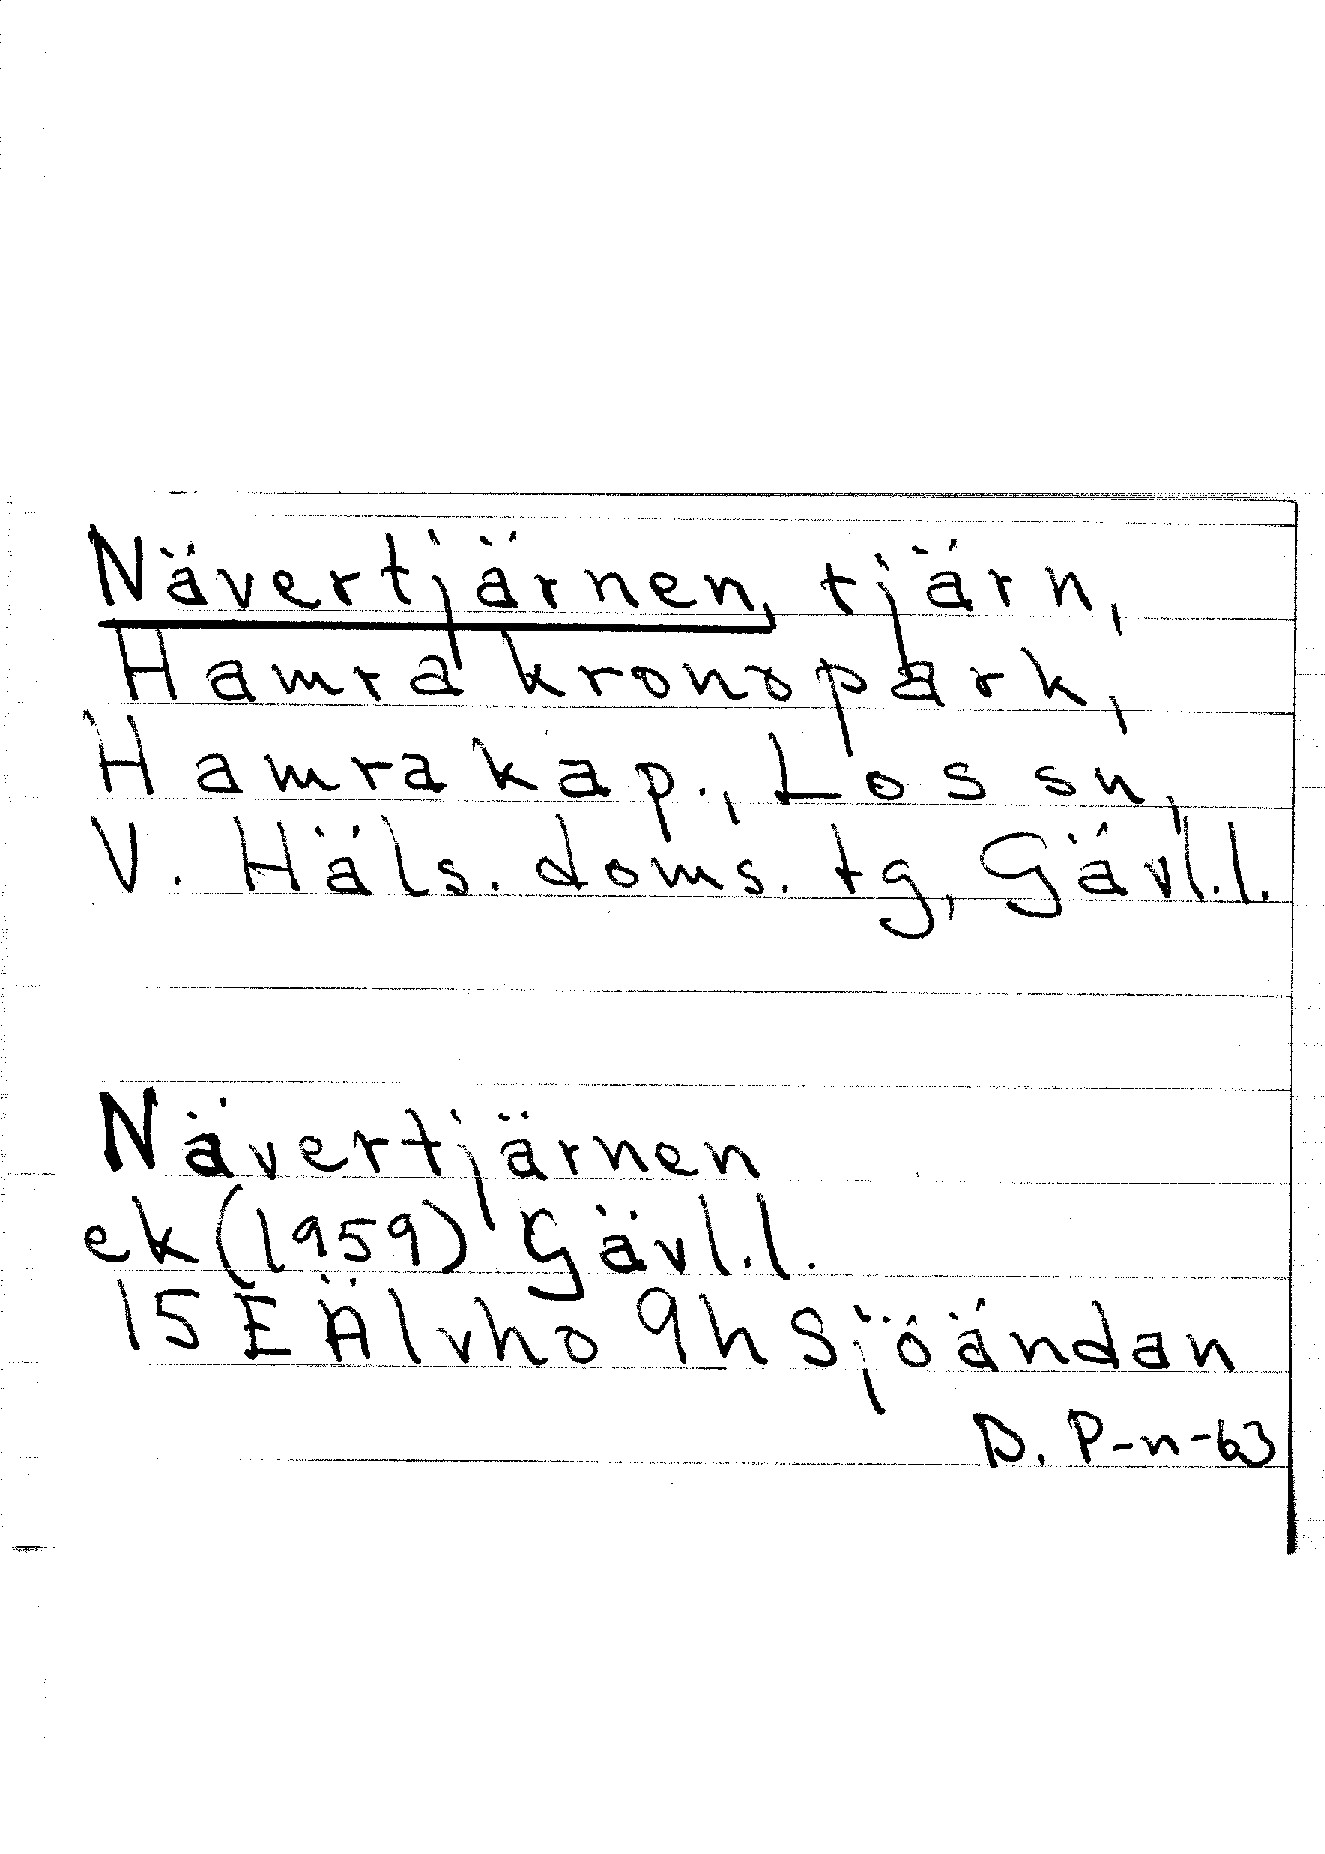 Nävertjärnen, tjärn,
Hamra kronopark,
Hamra kap., Los sn,
V. Häls. doms. tg, Gävl.l.
Nävertjärnen
ek (1959) Gävl.l.
15E Älvho 9h Sjöändan
D. P-n-63